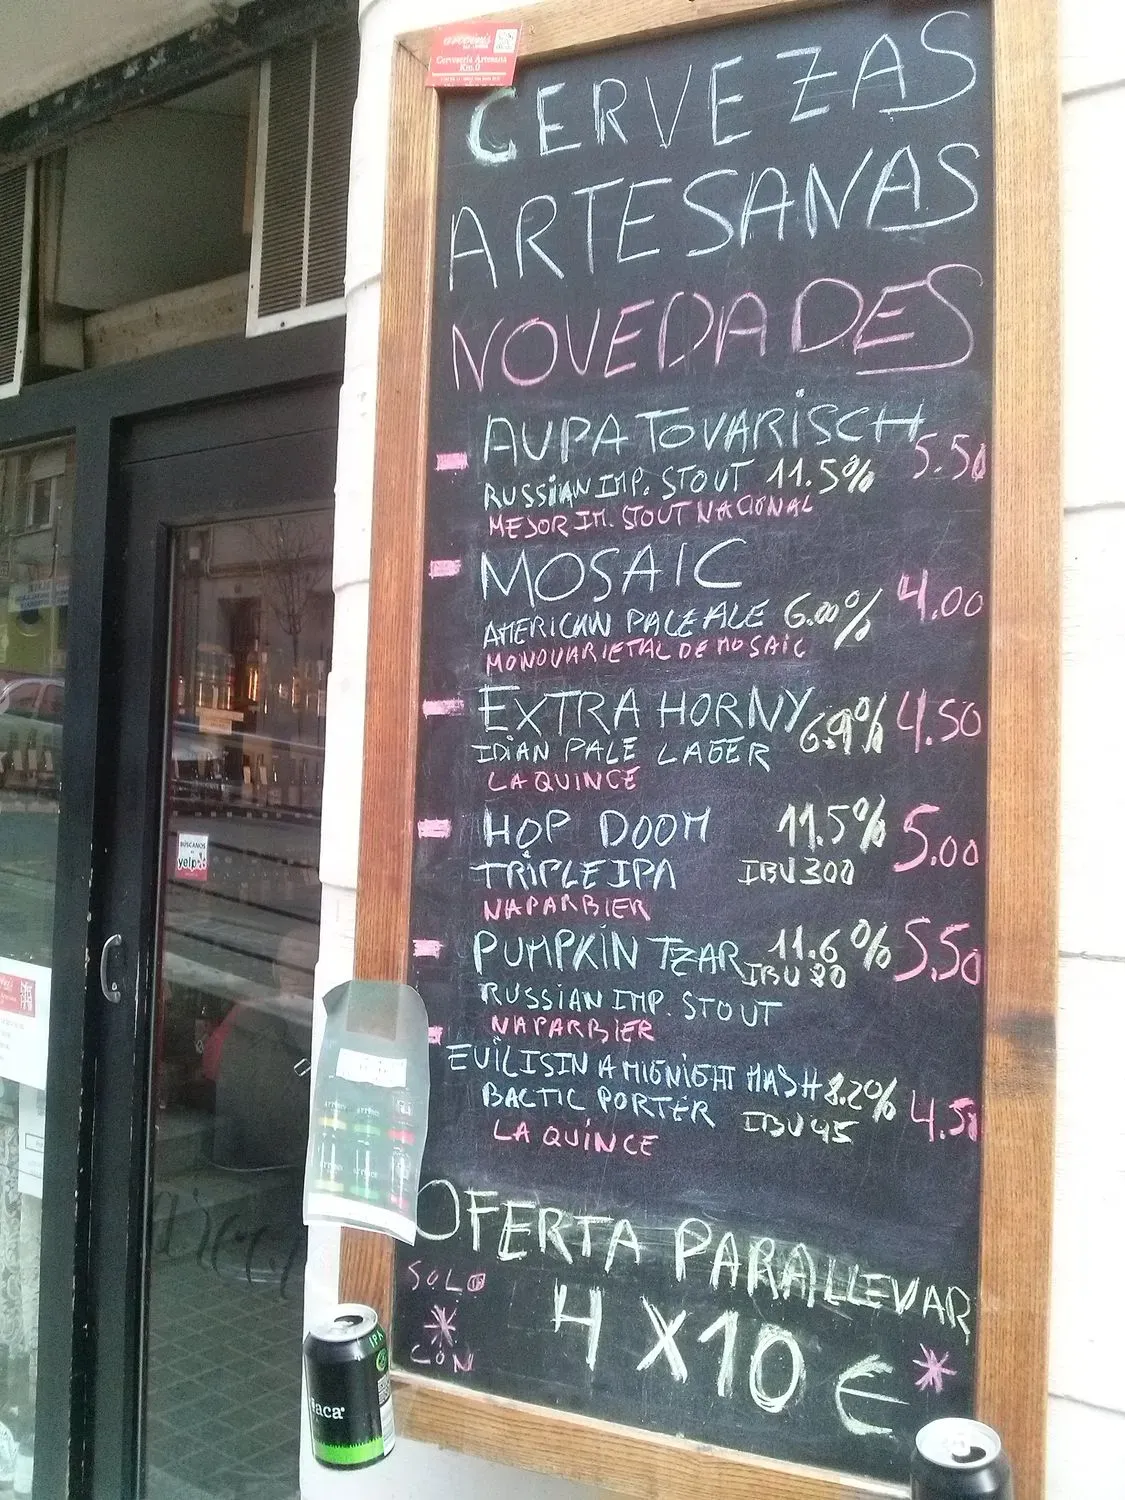 Cervecería Artesana
Km.0
CERVEZAS
ARTESANAS
NOVEDADES
AUPA TOVARISCH
5.50
RUSSIAN IMP. STOUT 11.5%
MEJOR IM. STOUT NACIONAL
MOSAIC
AMERICAN PALE ALE 6.00% 4.00
MONOVARIETAL DE MOSAIC
EXTRA HORNY 6.9% 4.50
IDIAN PALE LAGER
LA QUINCE
HOP DOOM 11.5% 5.00
TRIPLE IPA IBU 300
NAPARBIER
PUMPKIN TZAR 11.6% 5.50
IBU 80
RUSSIAN IMP. STOUT
NAPARBIER
EVILISIN A MIGNIGHT MASH 8.20%
BACTIC PORTER IBU 45 4.50
LA QUINCE
OFERTA PARA LLEVAR
SOLO
4 X 10 € *
*
CON
BÚSCANOS
yelp
IPA
aca